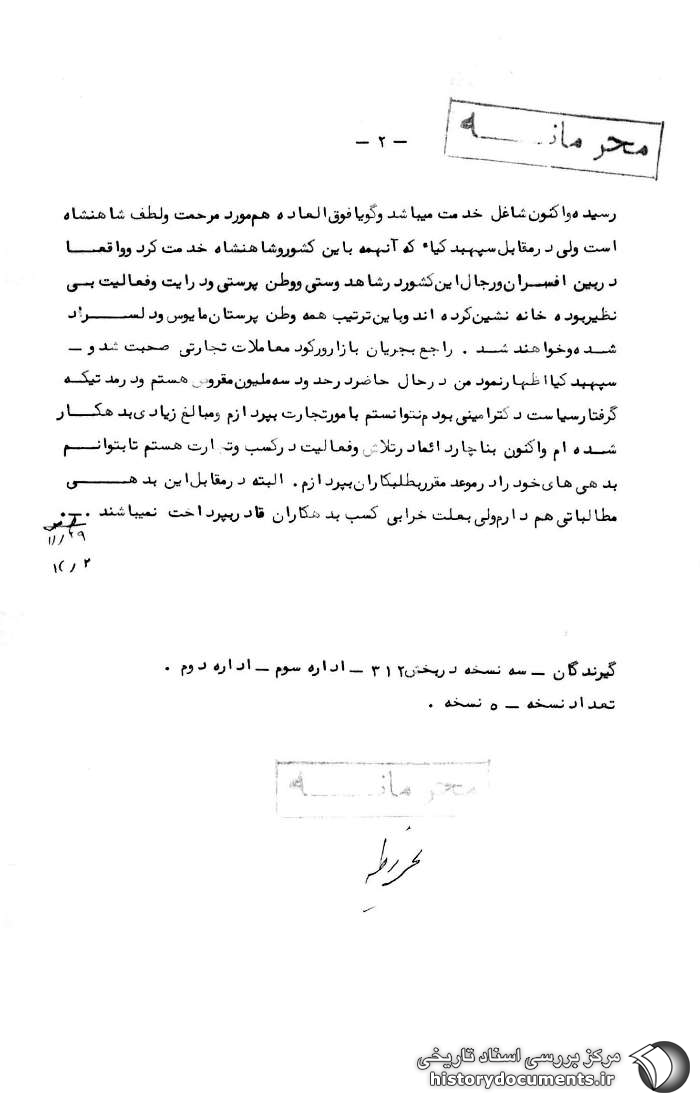 محرمانه
- ۲ -
رسیده واکنون شاغل خدمت میباشد وگویا فوق العاده هم مورد مرحمت ولطف شاهنشاه
است ولی در مقابل سپهبد کیا که آنهمه باین کشور وشاهنشاه خدمت کرد وواقعا
در بین افسران ورجال این کشور در شاهدوستی ووطن پرستی ودرایت وفعالیت بی
نظیر بوده خانه نشین کرده اند وباین ترتیب همه وطن پرستان مایوس ودلسرد
شده وخواهند شد . راجع بجریان بازار ورکود معاملات تجارتی صحبت شد و -
سپهبد کیا اظهار نمود من در حال حاضر در حدود سه ملیون مقروض هستم ودر مدتیکه
گرفتار سیاست دکتر امینی بودم نتوانستم بامور تجارت بپردازم ومبالغ زیادی بدهکار
شده ام واکنون بناچار دائما در تلاش وفعالیت در کسب وتجارت هستم تا بتوانم
بدهی های خود را در موعد مقرر بطلبکاران بپردازم . البته در مقابل این بدهی
مطالباتی هم دارم ولی بعلت خرابی کسب بدهکاران قادر بپرداخت نمیباشند .
۱۱/۲۹
۱۲/۲
گیرندگان - سه نسخه در بخش ۳۱۲ - اداره سوم - اداره دوم .
تعداد نسخه - ۵ نسخه .
محرمانه
مرکز بررسی اسناد تاریخی
historydocuments.ir